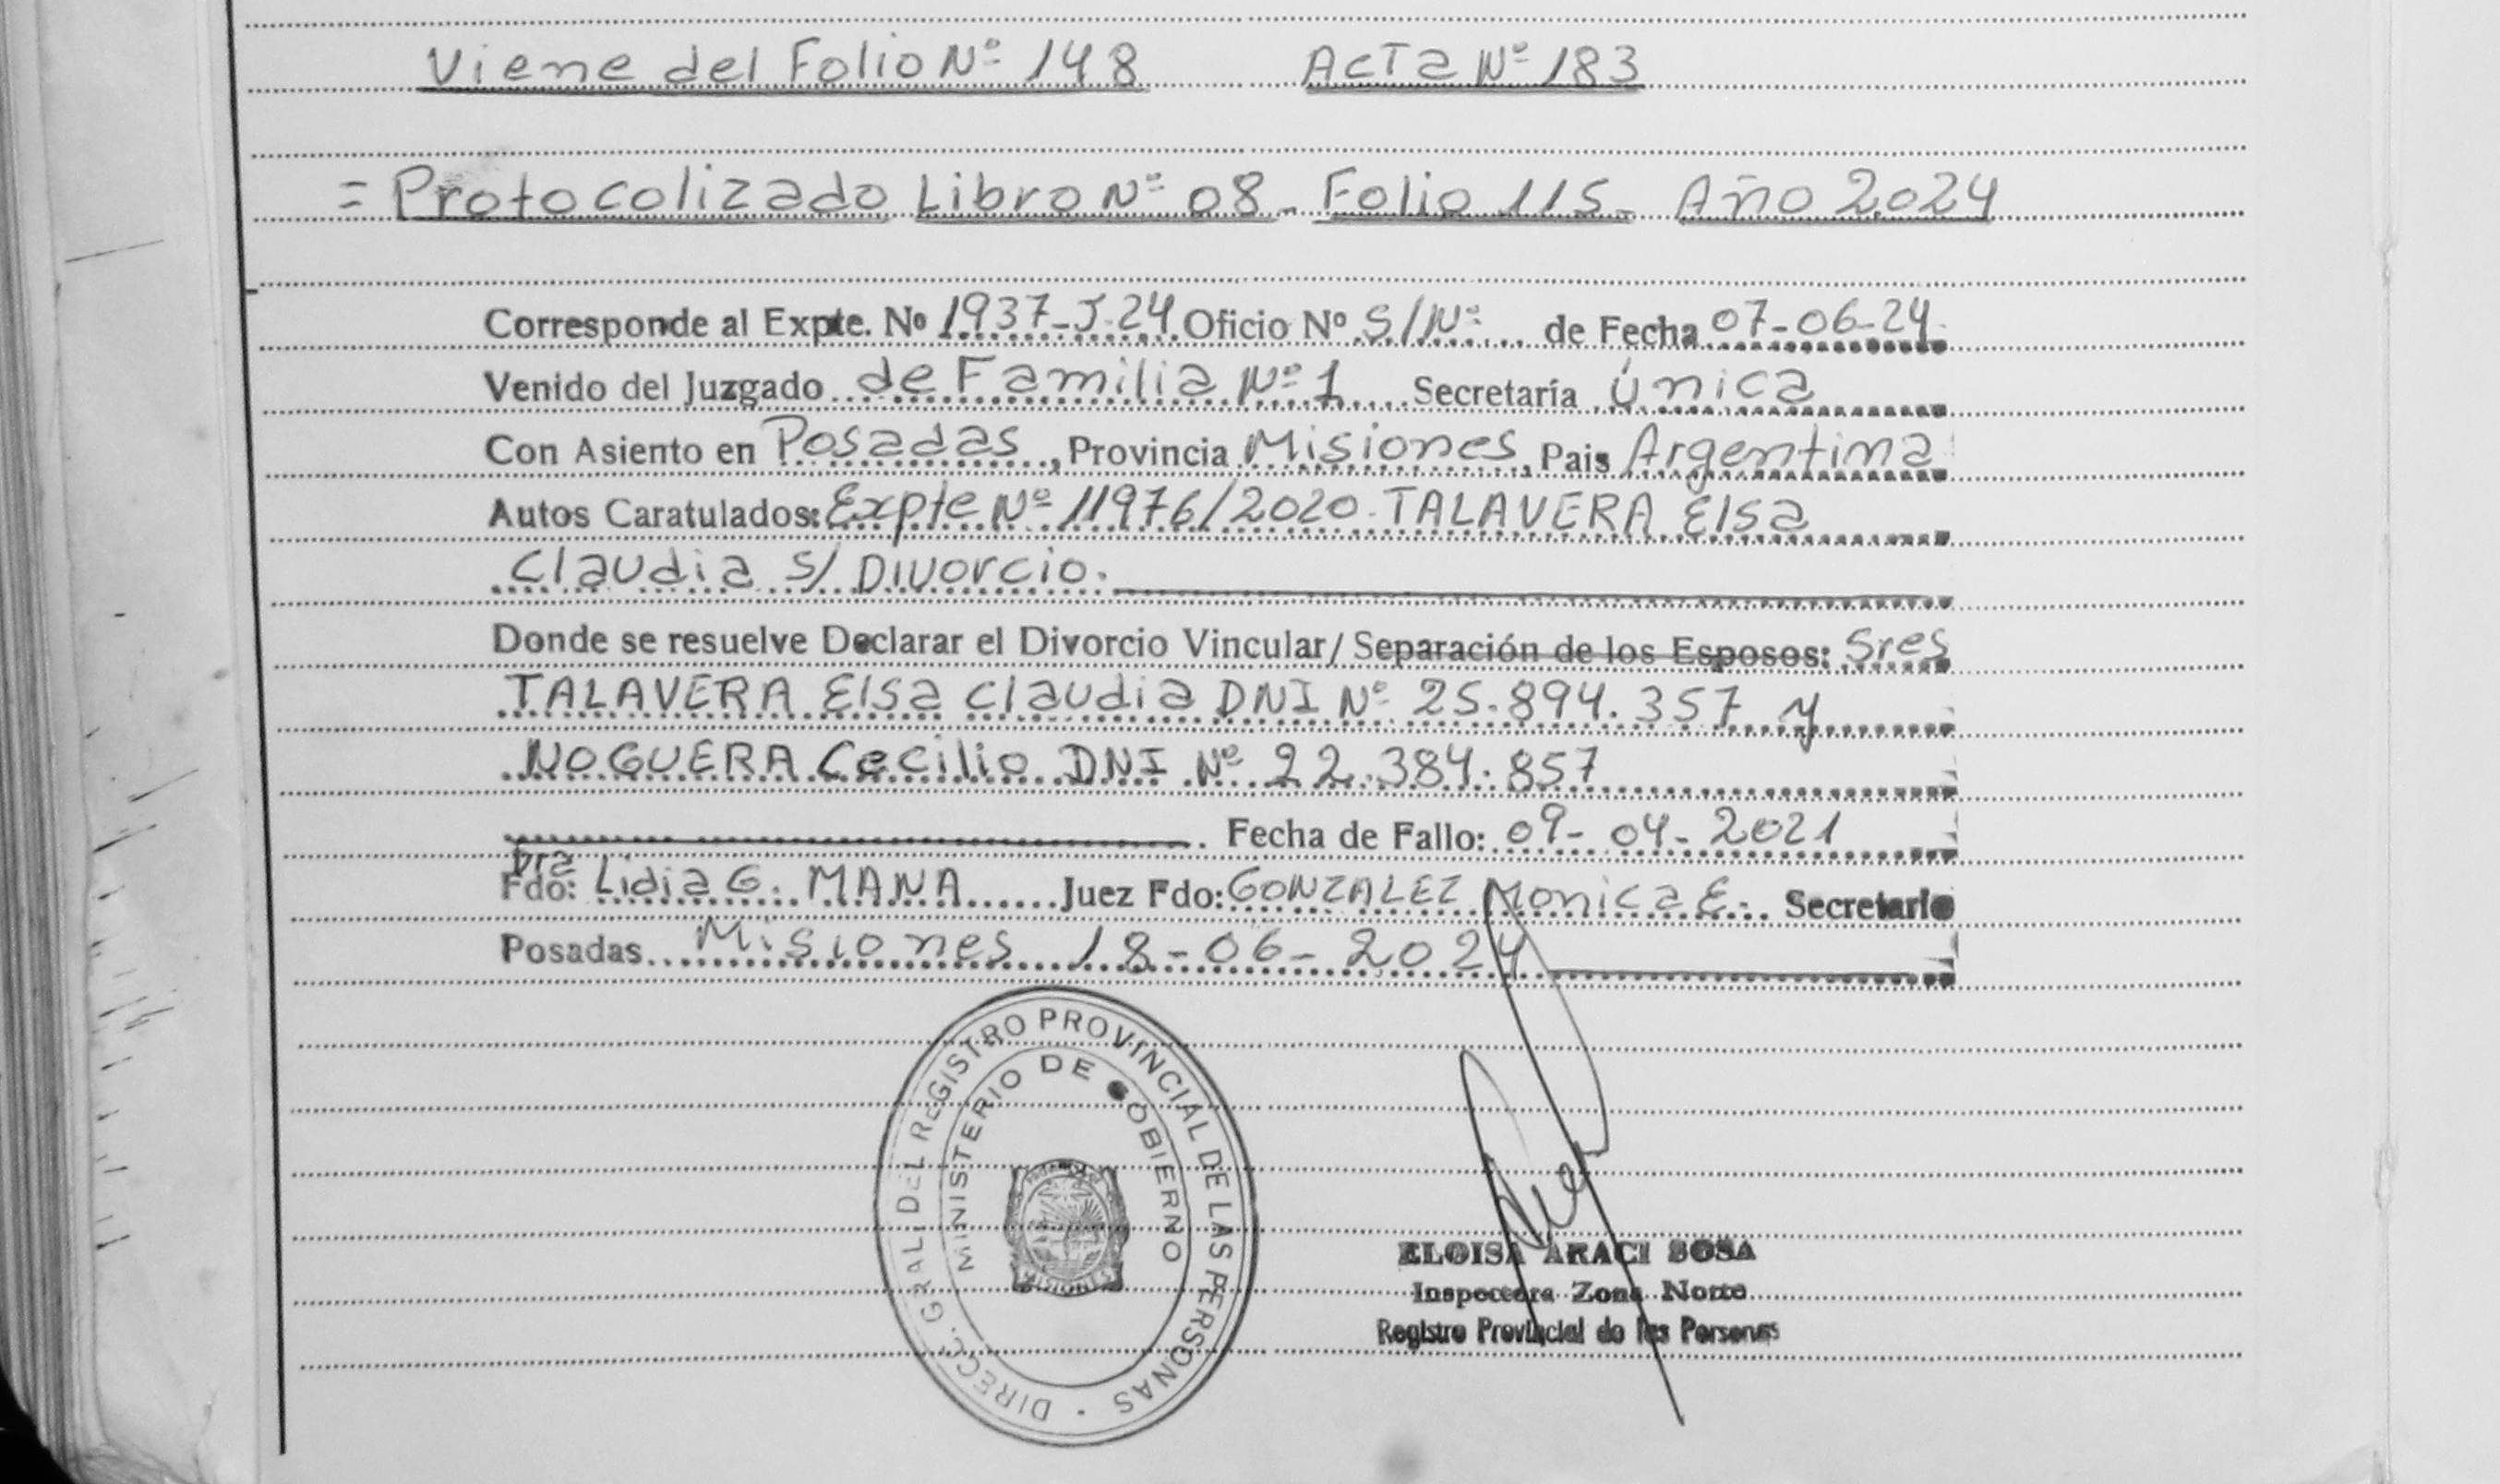 Viene del Folio Nº 148 Acta Nº 183
= Protocolizado Libro Nº 08 - Folio 115 - Año 2.024
Corresponde al Expte. Nº 1937-J-24 Oficio Nº S/Nº de Fecha 07-06-24
Venido del Juzgado de Familia Nº 1 Secretaría Única
Con Asiento en Posadas, Provincia Misiones, Pais Argentina
Autos Caratulados: Expte Nº 11976/2020. TALAVERA Elsa
Claudia s/ Divorcio.
Donde se resuelve Declarar el Divorcio Vincular/ Separación de los Esposos: Sres
TALAVERA Elsa Claudia DNI Nº 25.894.357 y
NOGUERA Cecilio DNI Nº 22.384.857
. Fecha de Fallo: 09-04-2021
Dra
Fdo: Lidia G. MANA Juez Fdo: GONZALEZ Monica E. Secretario
Posadas Misiones 18-06-2024
DIRECC. GRAL. DEL REGISTRO PROVINCIAL DE LAS PERSONAS
MINISTERIO DE GOBIERNO
MISIONES
ELOISA ARACI SOSA
Inspectora Zona Norte
Registro Provincial de las Personas